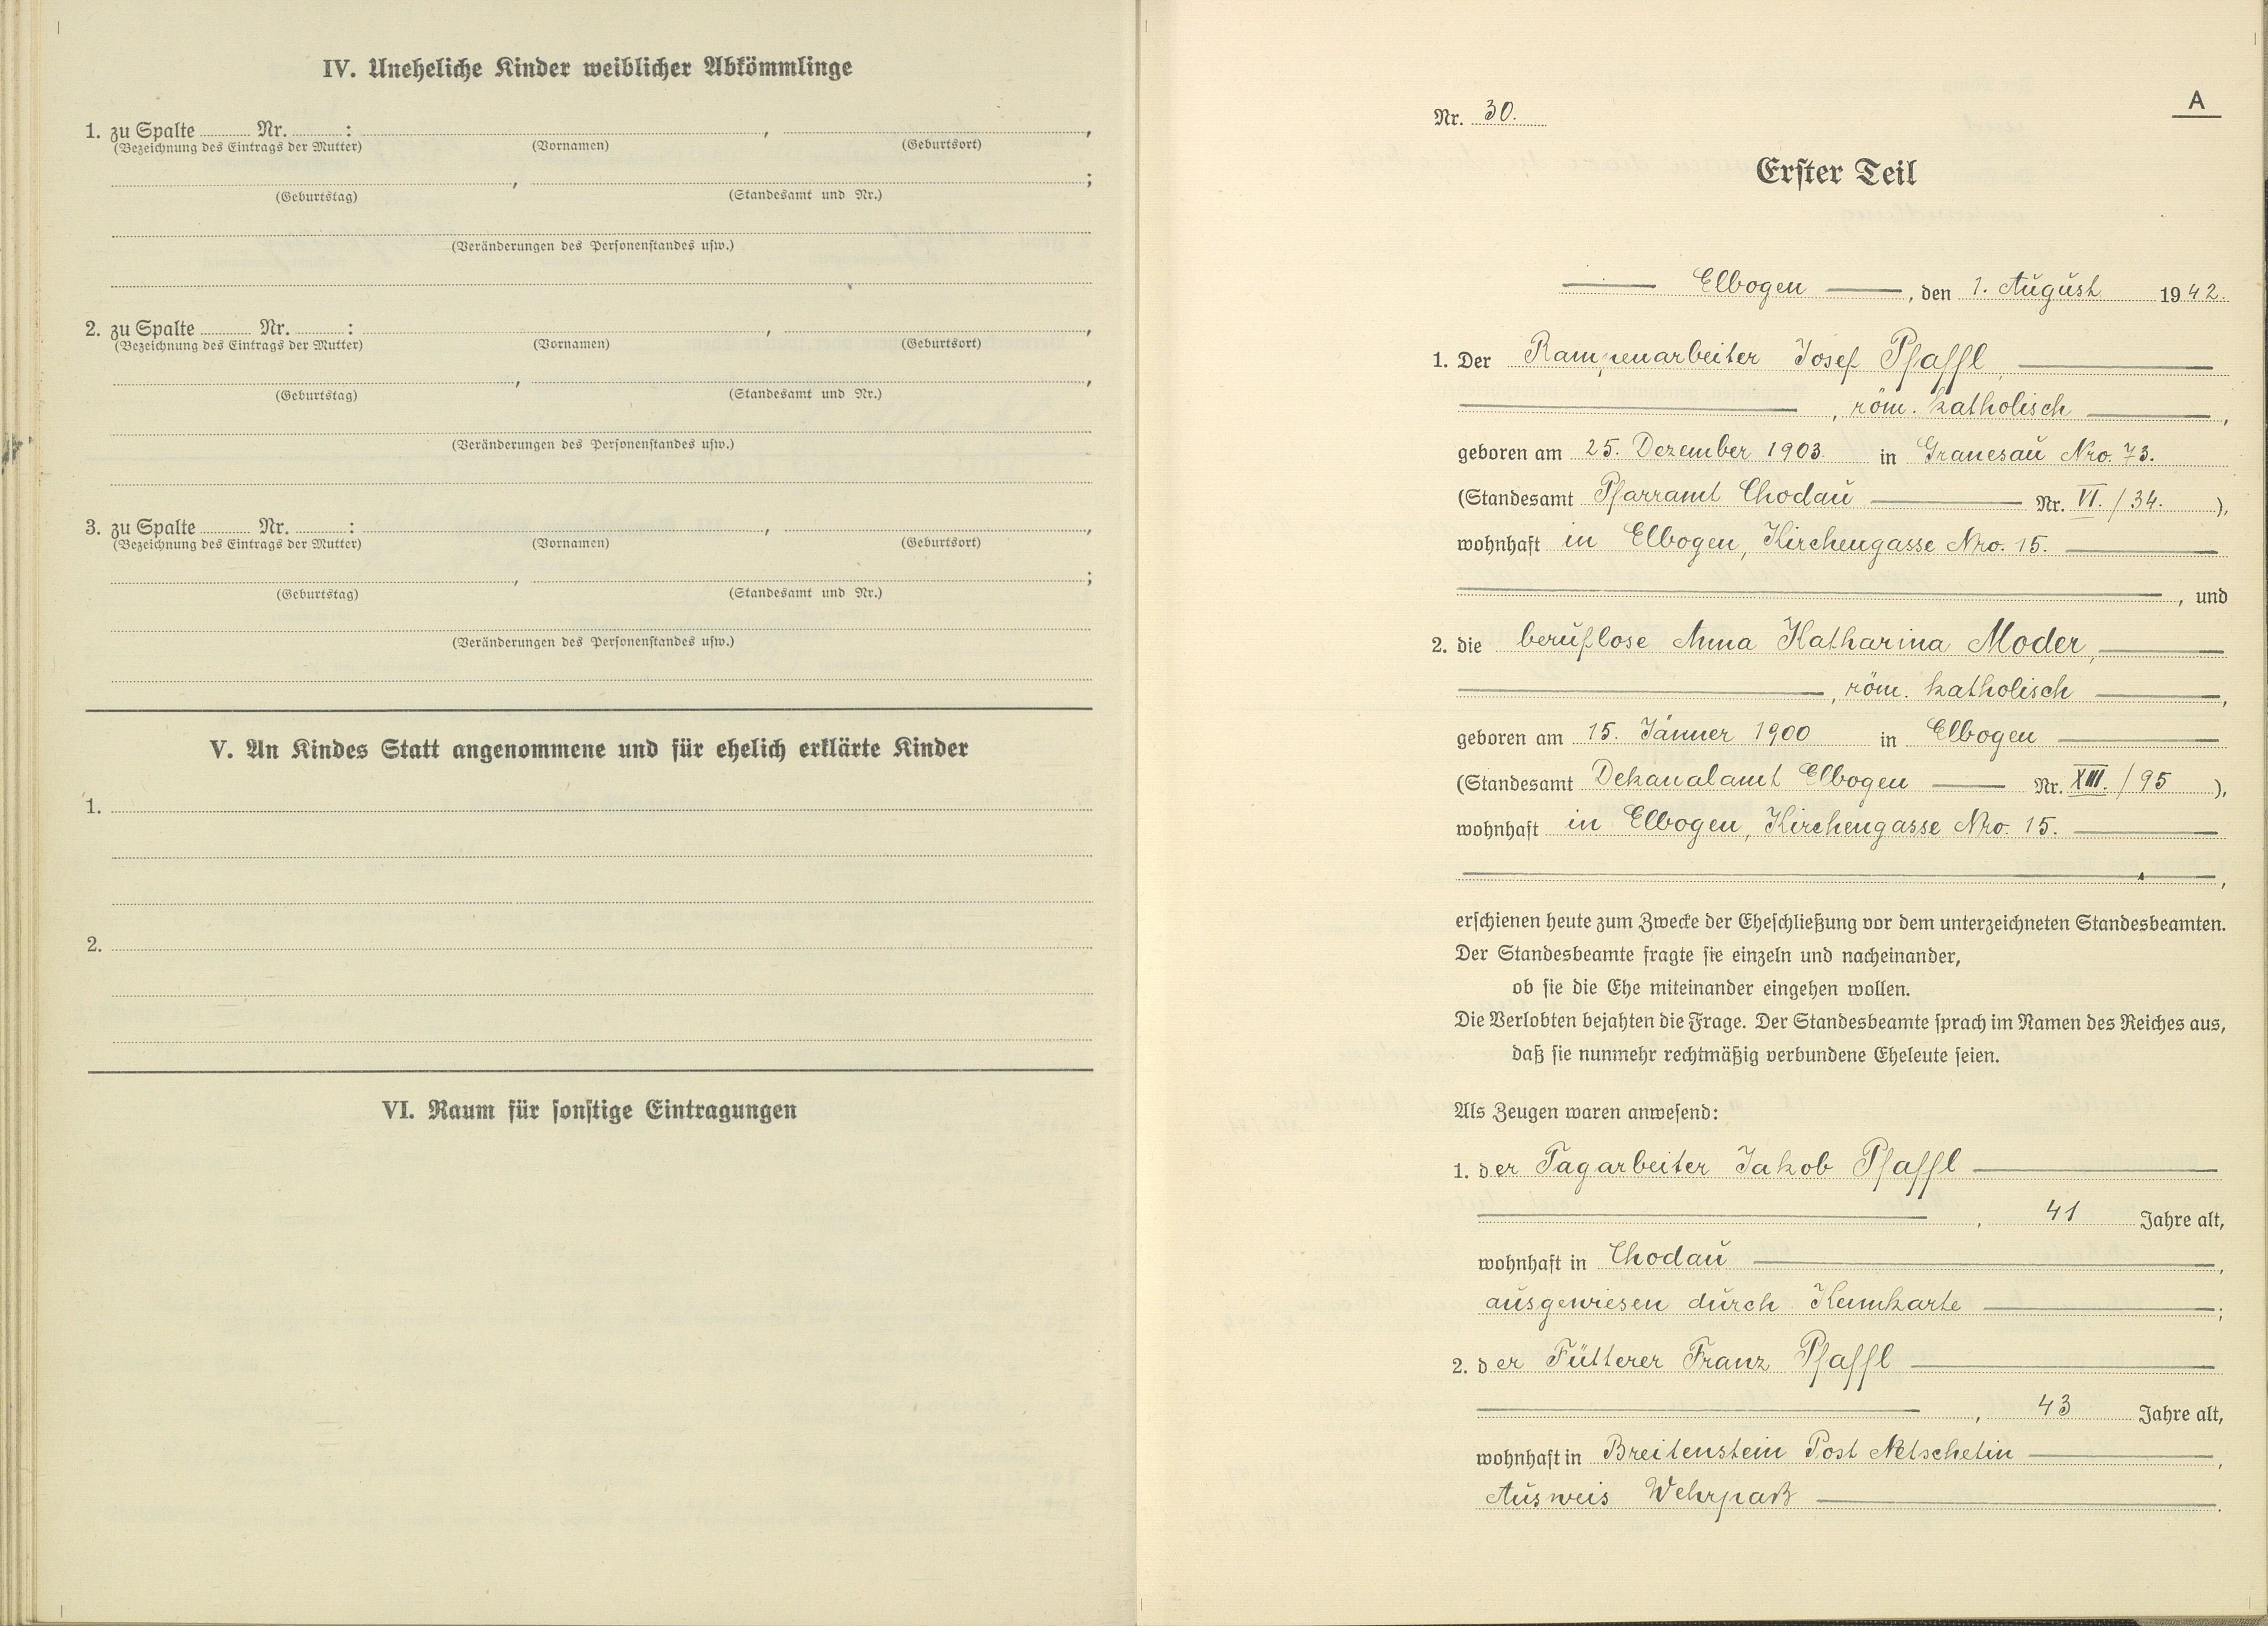 IV. Uneheliche Kinder weiblicher Abkömmlinge
1. zu Spalte ......... Nr. ......... : ........................ , ........................ ,
(Bezeichnung des Eintrags der Mutter) (Vornamen) (Geburtsort)
........................ , ........................ ;
(Geburtstag) (Standesamt und Nr.)
(Veränderungen des Personenstandes usw.)
2. zu Spalte ......... Nr. ......... : ........................ , ........................ ,
(Bezeichnung des Eintrags der Mutter) (Vornamen) (Geburtsort)
........................ , ........................ ,
(Geburtstag) (Standesamt und Nr.)
(Veränderungen des Personenstandes usw.)
3. zu Spalte ......... Nr. ......... : ........................ , ........................ ,
(Bezeichnung des Eintrags der Mutter) (Vornamen) (Geburtsort)
........................ , ........................ ;
(Geburtstag) (Standesamt und Nr.)
(Veränderungen des Personenstandes usw.)
V. An Kindes Statt angenommene und für ehelich erklärte Kinder
1.
2.
VI. Raum für sonstige Eintragungen
A
Nr. 30.
Erster Teil
Elbogen, den 1. August 1942.
1. Der Rampenarbeiter Josef Pfaffl,
, röm. katholisch ,
geboren am 25. Dezember 1903. in Granesau Nro. 73.
(Standesamt Pfarramt Chodau Nr. VI. / 34. ),
wohnhaft in Elbogen, Kirchengasse Nro. 15.
, und
2. die beruflose Anna Katharina Moder,
, röm. katholisch ,
geboren am 15. Jänner 1900 in Elbogen
(Standesamt Dekanalamt Elbogen Nr. XIII. / 95 ),
wohnhaft in Elbogen, Kirchengasse Nro. 15.
,
erschienen heute zum Zwecke der Eheschließung vor dem unterzeichneten Standesbeamten.
Der Standesbeamte fragte sie einzeln und nacheinander,
ob sie die Ehe miteinander eingehen wollen.
Die Verlobten bejahten die Frage. Der Standesbeamte sprach im Namen des Reiches aus,
daß sie nunmehr rechtmäßig verbundene Eheleute seien.
Als Zeugen waren anwesend:
1. der Tagarbeiter Jakob Pfaffl
, 41 Jahre alt,
wohnhaft in Chodau ,
ausgewiesen durch Kennkarte ;
2. der Fütterer Franz Pfaffl
, 43 Jahre alt,
wohnhaft in Breitenstein Post Netschetin ,
Ausweis Wehrpaß .